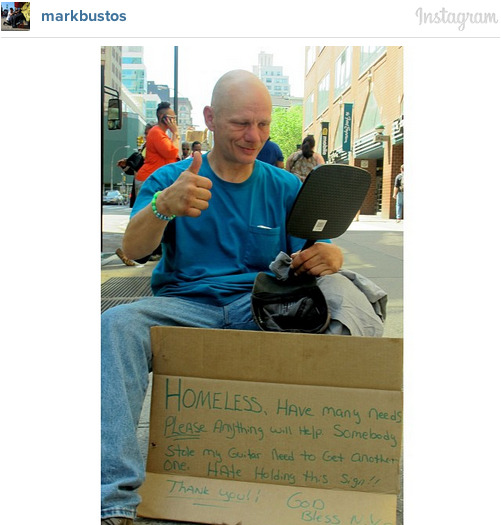 markbustos
Instagram
HOMELESS. HAVE many needs
PLEASE Anything will Help Somebody
Stole my Guitar Need to Get another
one. HAte Holding this Sign!!
THANK you!!
GOD
Bless N.Y.